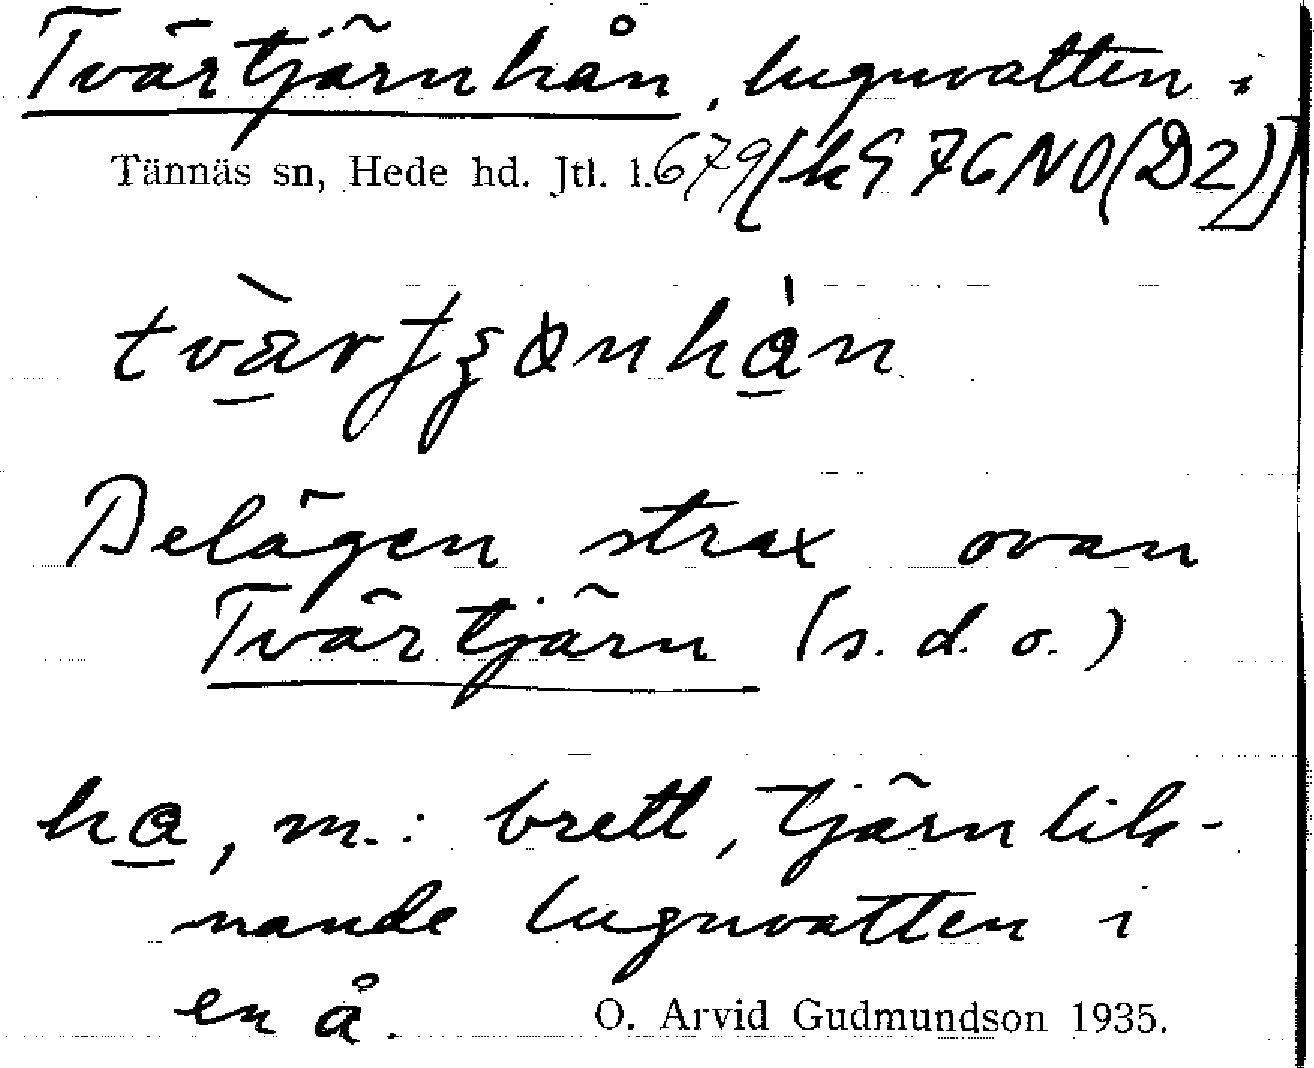 Tvärtjärnhån, lugnvatten i
Tännäs sn, Hede hd. Jtl. l. 679 (k976NO(D2))
Belägen strax ovan
Tvärtjärn (s. d. o.)
ha, m.: brett, tjärnlik-
nande lugnvatten i
en å.
O. Arvid Gudmundson 1935.